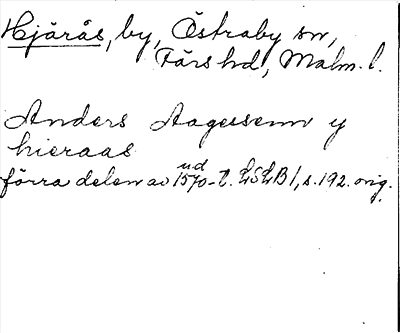 Hjärås, by, Östraby sn,
Färs hd, Malm. l.
Anders Aagessenn y
hieraas
förra delen av 1570-t. LSLB 1, s. 192. orig.